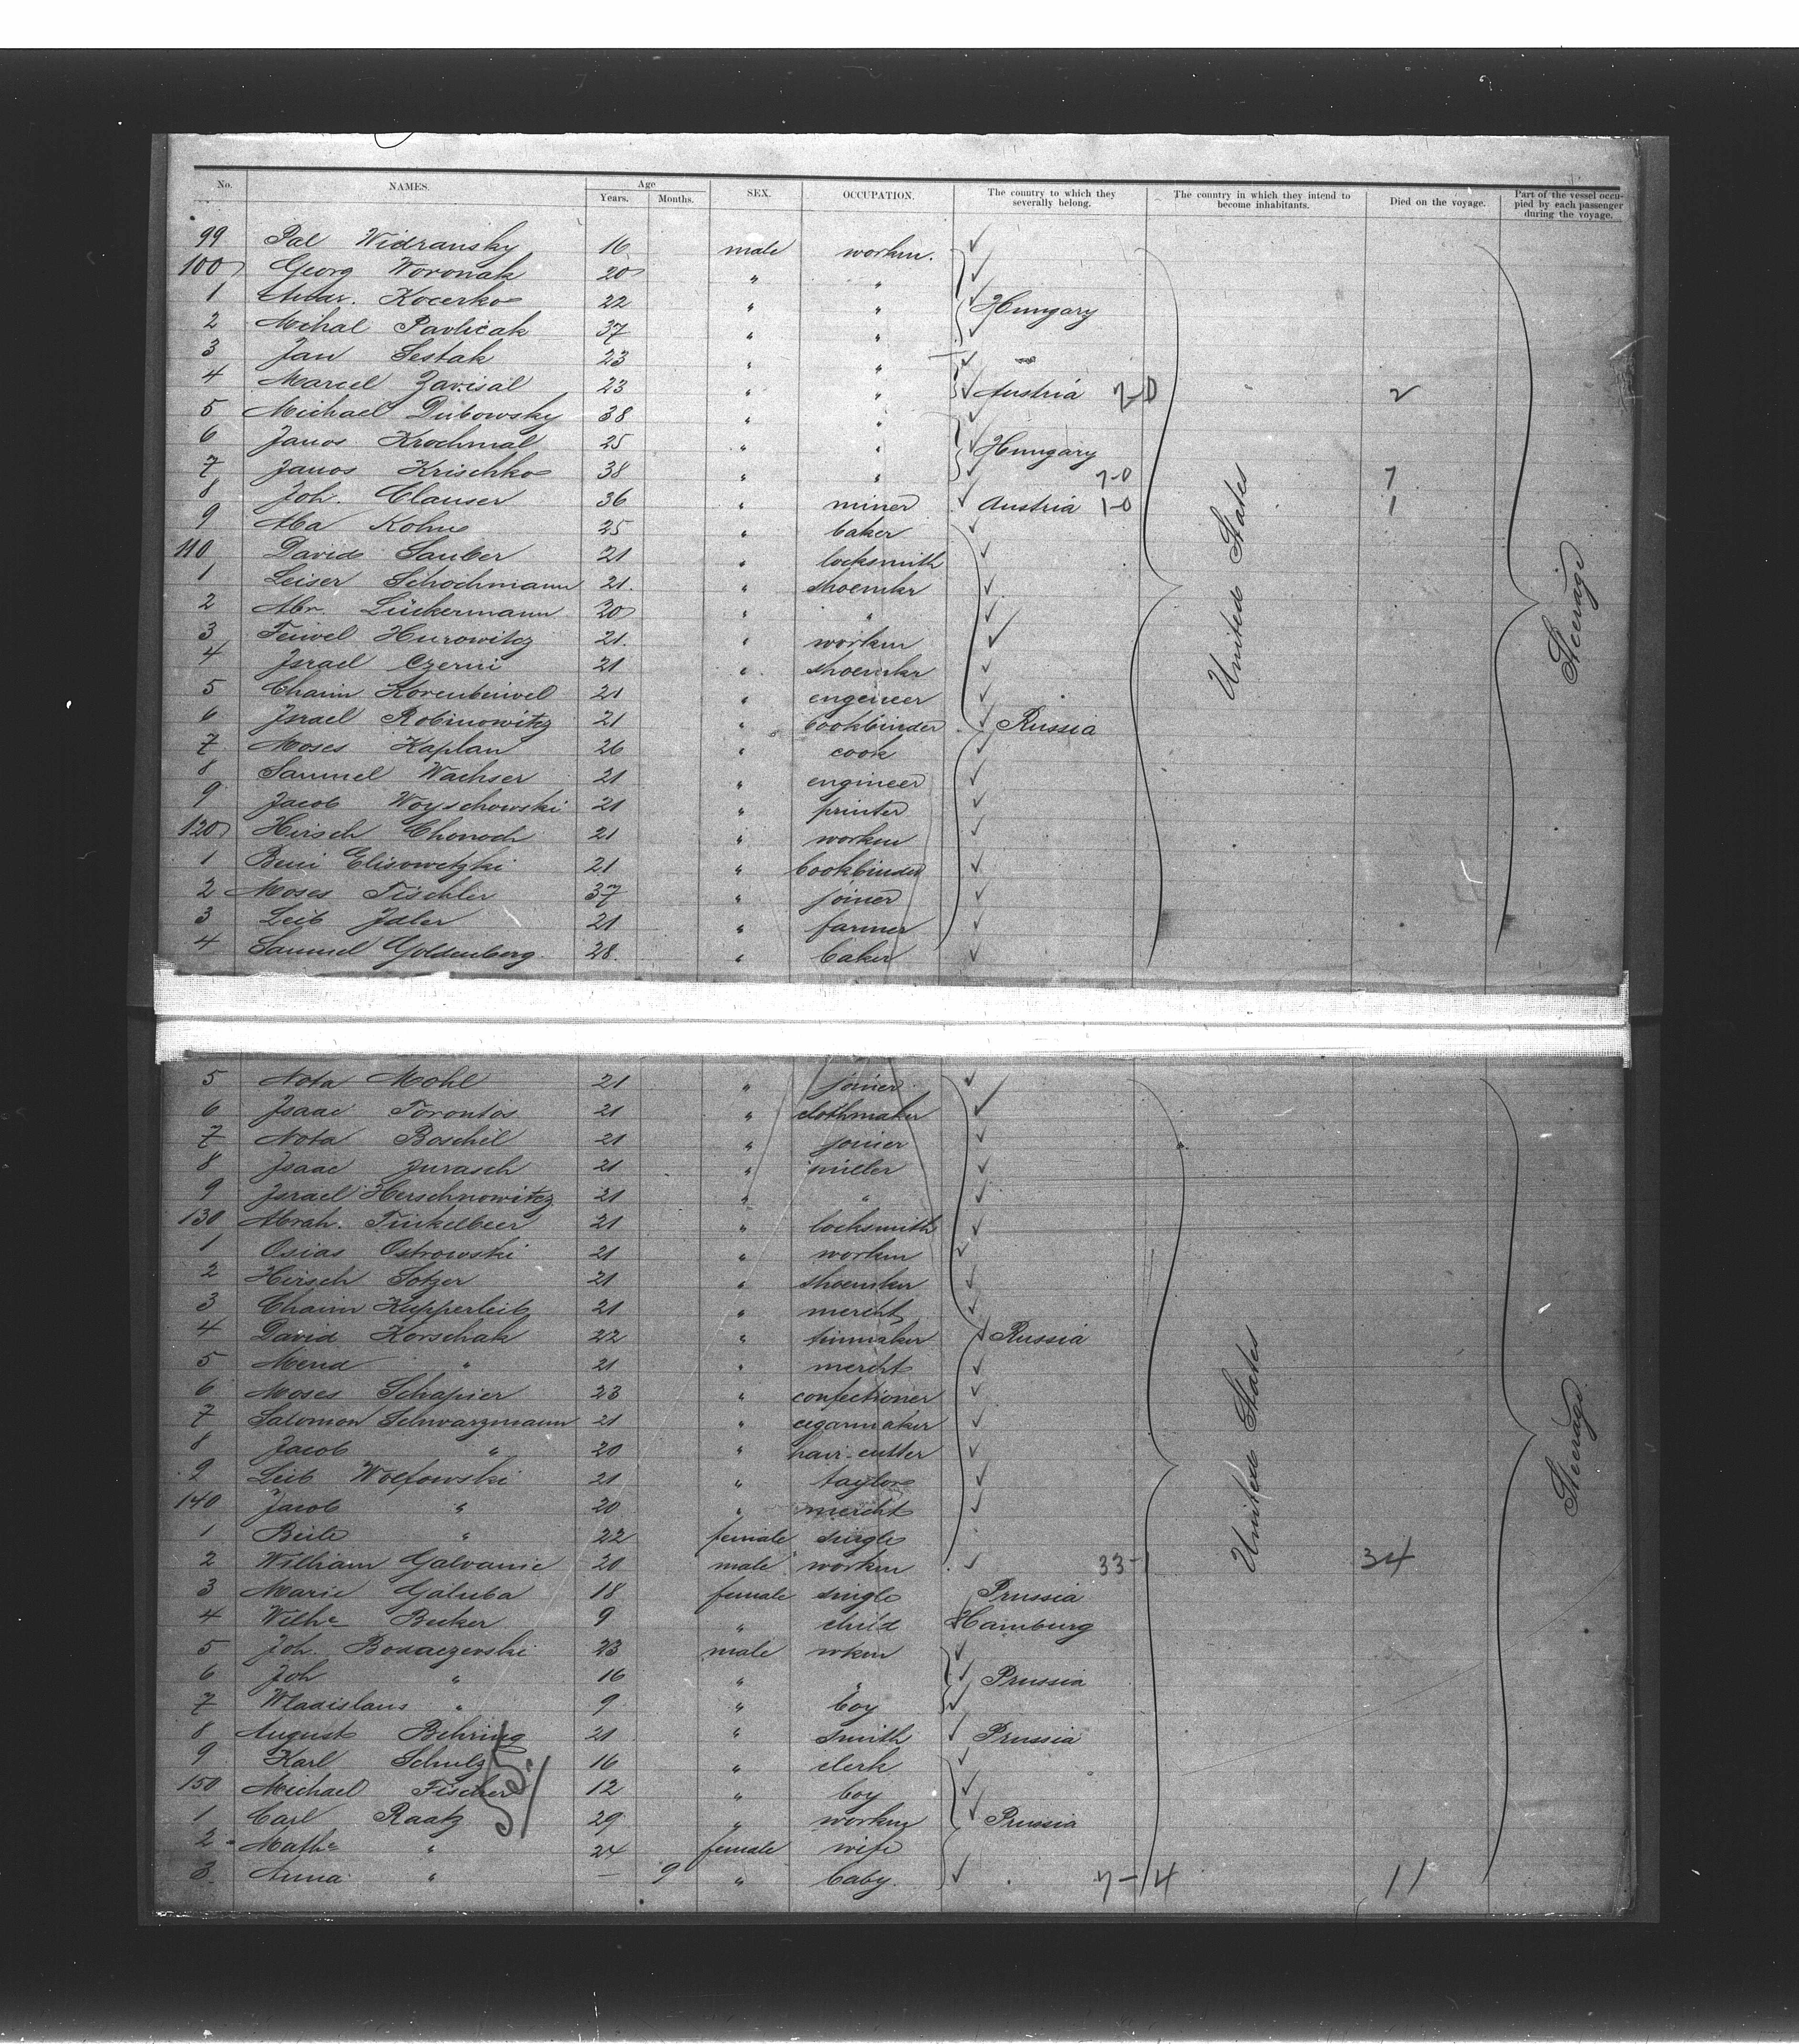 No. NAMES. Age Years. Months. SEX. OCCUPATION. The country to which they severally belong. The country in which they intend to become inhabitants. Died on the voyage. Part of the vessel occupied by each passenger during the voyage.
99 Pal Widransky 16 male workm.
100 Georg Woronak 20 " "
1 Andr. Kocerko 22 " " Hungary
2 Mihal Pavlicak 37 " "
3 Jan Sestak 23 " "
4 Marcel Zavisal 23 " " Austria 2-0 2
5 Michael Dubowsky 38 " "
6 Janos Krochmal 25 " " Hungary
7 Janos Krischko 38 " " 7-0 7
8 Joh. Clauser 36 " miner Austria 1-0 1
9 Aba Kohn 25 " baker
110 David Sauber 21 " locksmith
1 Leiser Schochmann 21. " shoemkr
2 Abr. Lückermann 20 " "
3 Feiwel Hurowitz 21. " workm
4 Israel Czerni 21 " shoemkr
5 Chaim Korenbeiwel 21 " engeneer
6 Israel Robinowitz 21 " bookbinder Russia
7 Moses Kaplan 26 " cook
8 Samuel Wachser 21 " engineer
9 Jacob Woyschowski 21 " printer
120 Hirsch Chonoch 21 " workm
1 Beni Elisowetzki 21 " bookbinder
2 Moses Tischler 37 " joiner
3 Leib Idler 21 " farmer
4 Samuel Goldenberg 28. " baker
United States
Steerage
5 Nota Mohl 21 " joiner
6 Isaac Torontos 21 " clothmaker
7 Nota Boschil 21 " joiner
8 Isaac Jurasch 21 " miller
9 Israel Herschnowitz 21 " "
130 Abrah. Finkelbeer 21 " locksmith
1 Osias Ostrowski 21 " workm
2 Hirsch Sotzer 21 " shoemker
3 Chaim Kupperleib 21 " mercht
4 David Korschak 22 " tinmaker Russia
5 " 21 " mercht
6 Moses Schapier 23 " confectioner
7 Salomon Schwarzmann 21 " cigarmaker
8 Jacob " 20 " hair-cutter
9 Leib Wolfowski 21 " taylor
140 Jacob " 20 " mercht
1 Beile " 22 female single
2 William Galvanic 20 male workm 33-1 34
3 Marie Galuba 18 female single Prussia
4 Wilhe Becker 9 " child Hamburg
5 Joh. 23 male wkm
6 Joh " 16 " " Prussia
7 Wladislaus " 9 " boy
8 August Behring 21 " smith Prussia
9 Karl Schulz 16 " clerk
150 Michael Fischer 12 " boy
1 Carl Raatz 29 " workm Prussia
2 Mathe " 24 female wife
3. Anna " — 9 " baby. 7-4 11
United States
Steerage